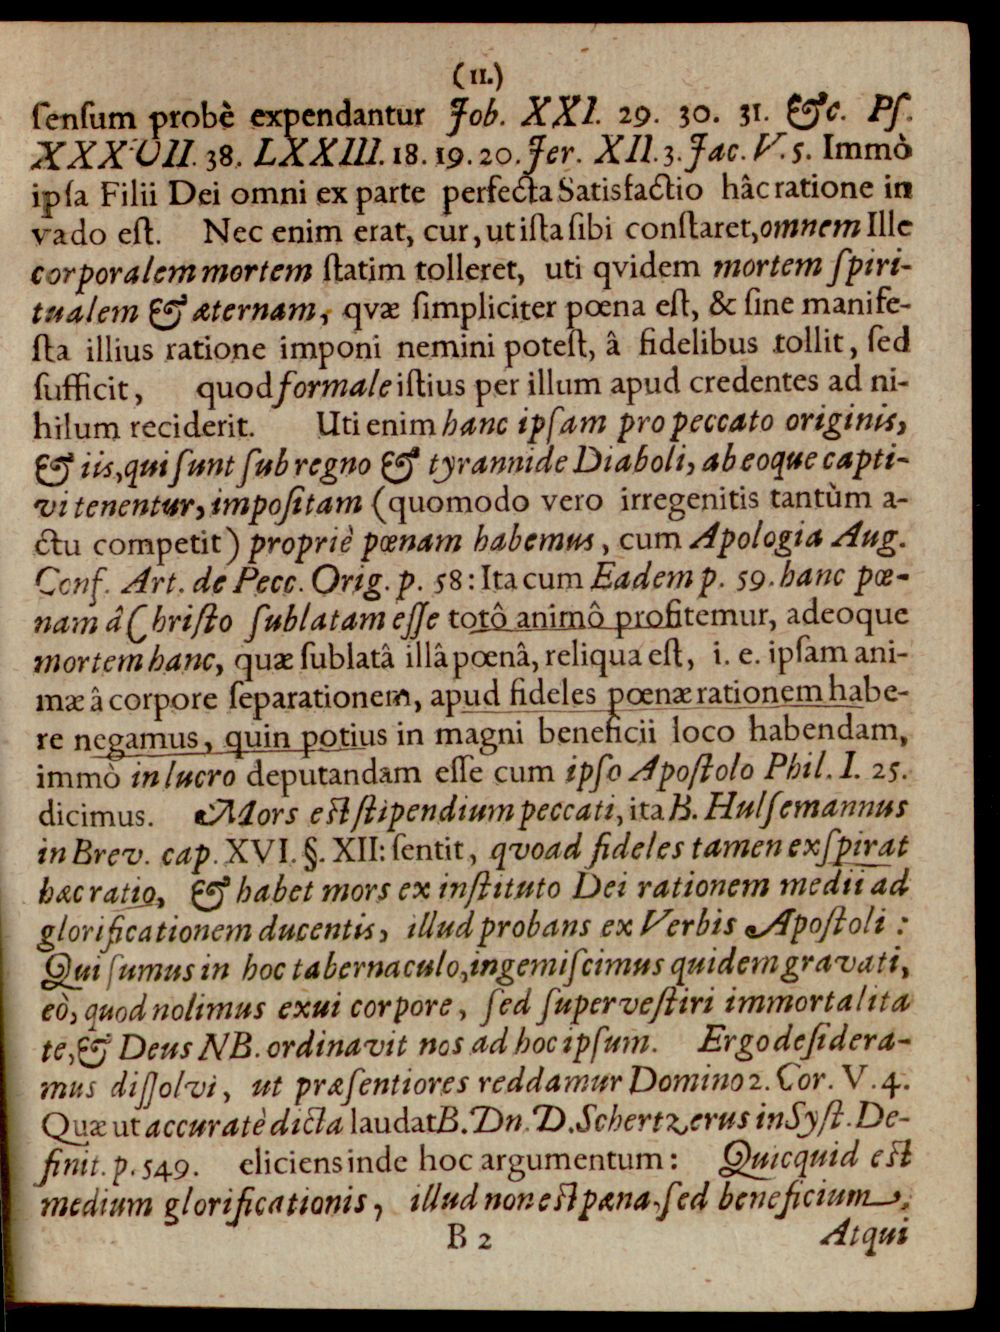 (11.)
ſenſum probè expendantur Job. XXI. 29. 30. 31. &c. Pſ.
XXXVII. 38. LXXIII. 18. 19. 20. Jer. XII. 3. Jac. V. 5. Immò
ipſa Filii Dei omni ex parte perfecta Satisfactio hâc ratione in
vado eſt. Nec enim erat, cur, ut iſta ſibi conſtaret, omnem Ille
corporalem mortem ſtatim tolleret, uti qvidem mortem ſpiri-
tualem & æternam, qvæ ſimpliciter pœna eſt, & ſine manife-
ſta illius ratione imponi nemini poteſt, â fidelibus tollit, ſed
ſufficit, quod formale iſtius per illum apud credentes ad ni-
hilum reciderit. Uti enim hanc ipſam pro peccato originis,
& iis, qui ſunt ſub regno & tyrannide Diaboli, ab eoque capti-
vi tenentur, impoſitam (quomodo vero irregenitis tantùm a-
ctu competit) propriè pœnam habemus, cum Apologia Aug.
Conf. Art. de Pecc. Orig. p. 58: Ita cum Eadem p. 59. hanc pœ-
nam â Chriſto ſublatam eſſe totô animô profitemur, adeoque
mortem hanc, quæ ſublatâ illâ pœnâ, reliqua eſt, i. e. ipſam ani-
mæ â corpore ſeparationem, apud fideles pœnæ rationem habe-
re negamus, quin potius in magni beneficii loco habendam,
immò in lucro deputandam eſſe cum ipſo Apoſtolo Phil. I. 25.
dicimus. Mors eſt ſtipendium peccati, ita B. Hulſemannus
in Brev. cap. XVI. §. XII: ſentit, qvoad fideles tamen exſpirat
hæc ratio, & habet mors ex inſtituto Dei rationem medii ad
glorificationem ducentis, illud probans ex Verbis Apoſtoli:
Qui ſumus in hoc tabernaculo, ingemiſcimus quidem gravati,
eò, quod nolimus exui corpore, ſed ſuperveſtiri immortalita
te, & Deus NB. ordinavit nos ad hoc ipſum. Ergo deſidera-
mus diſſolvi, ut præſentiores reddamur Domino 2. Cor. V. 4.
Quæ ut accuratè dicta laudat B. Dn. D. Schertzerus in Syſt. De-
finit. p. 549. eliciens inde hoc argumentum: Quicquid eſt
medium glorificationis, illud non eſt pæna, ſed beneficium,
B 2 Atqui